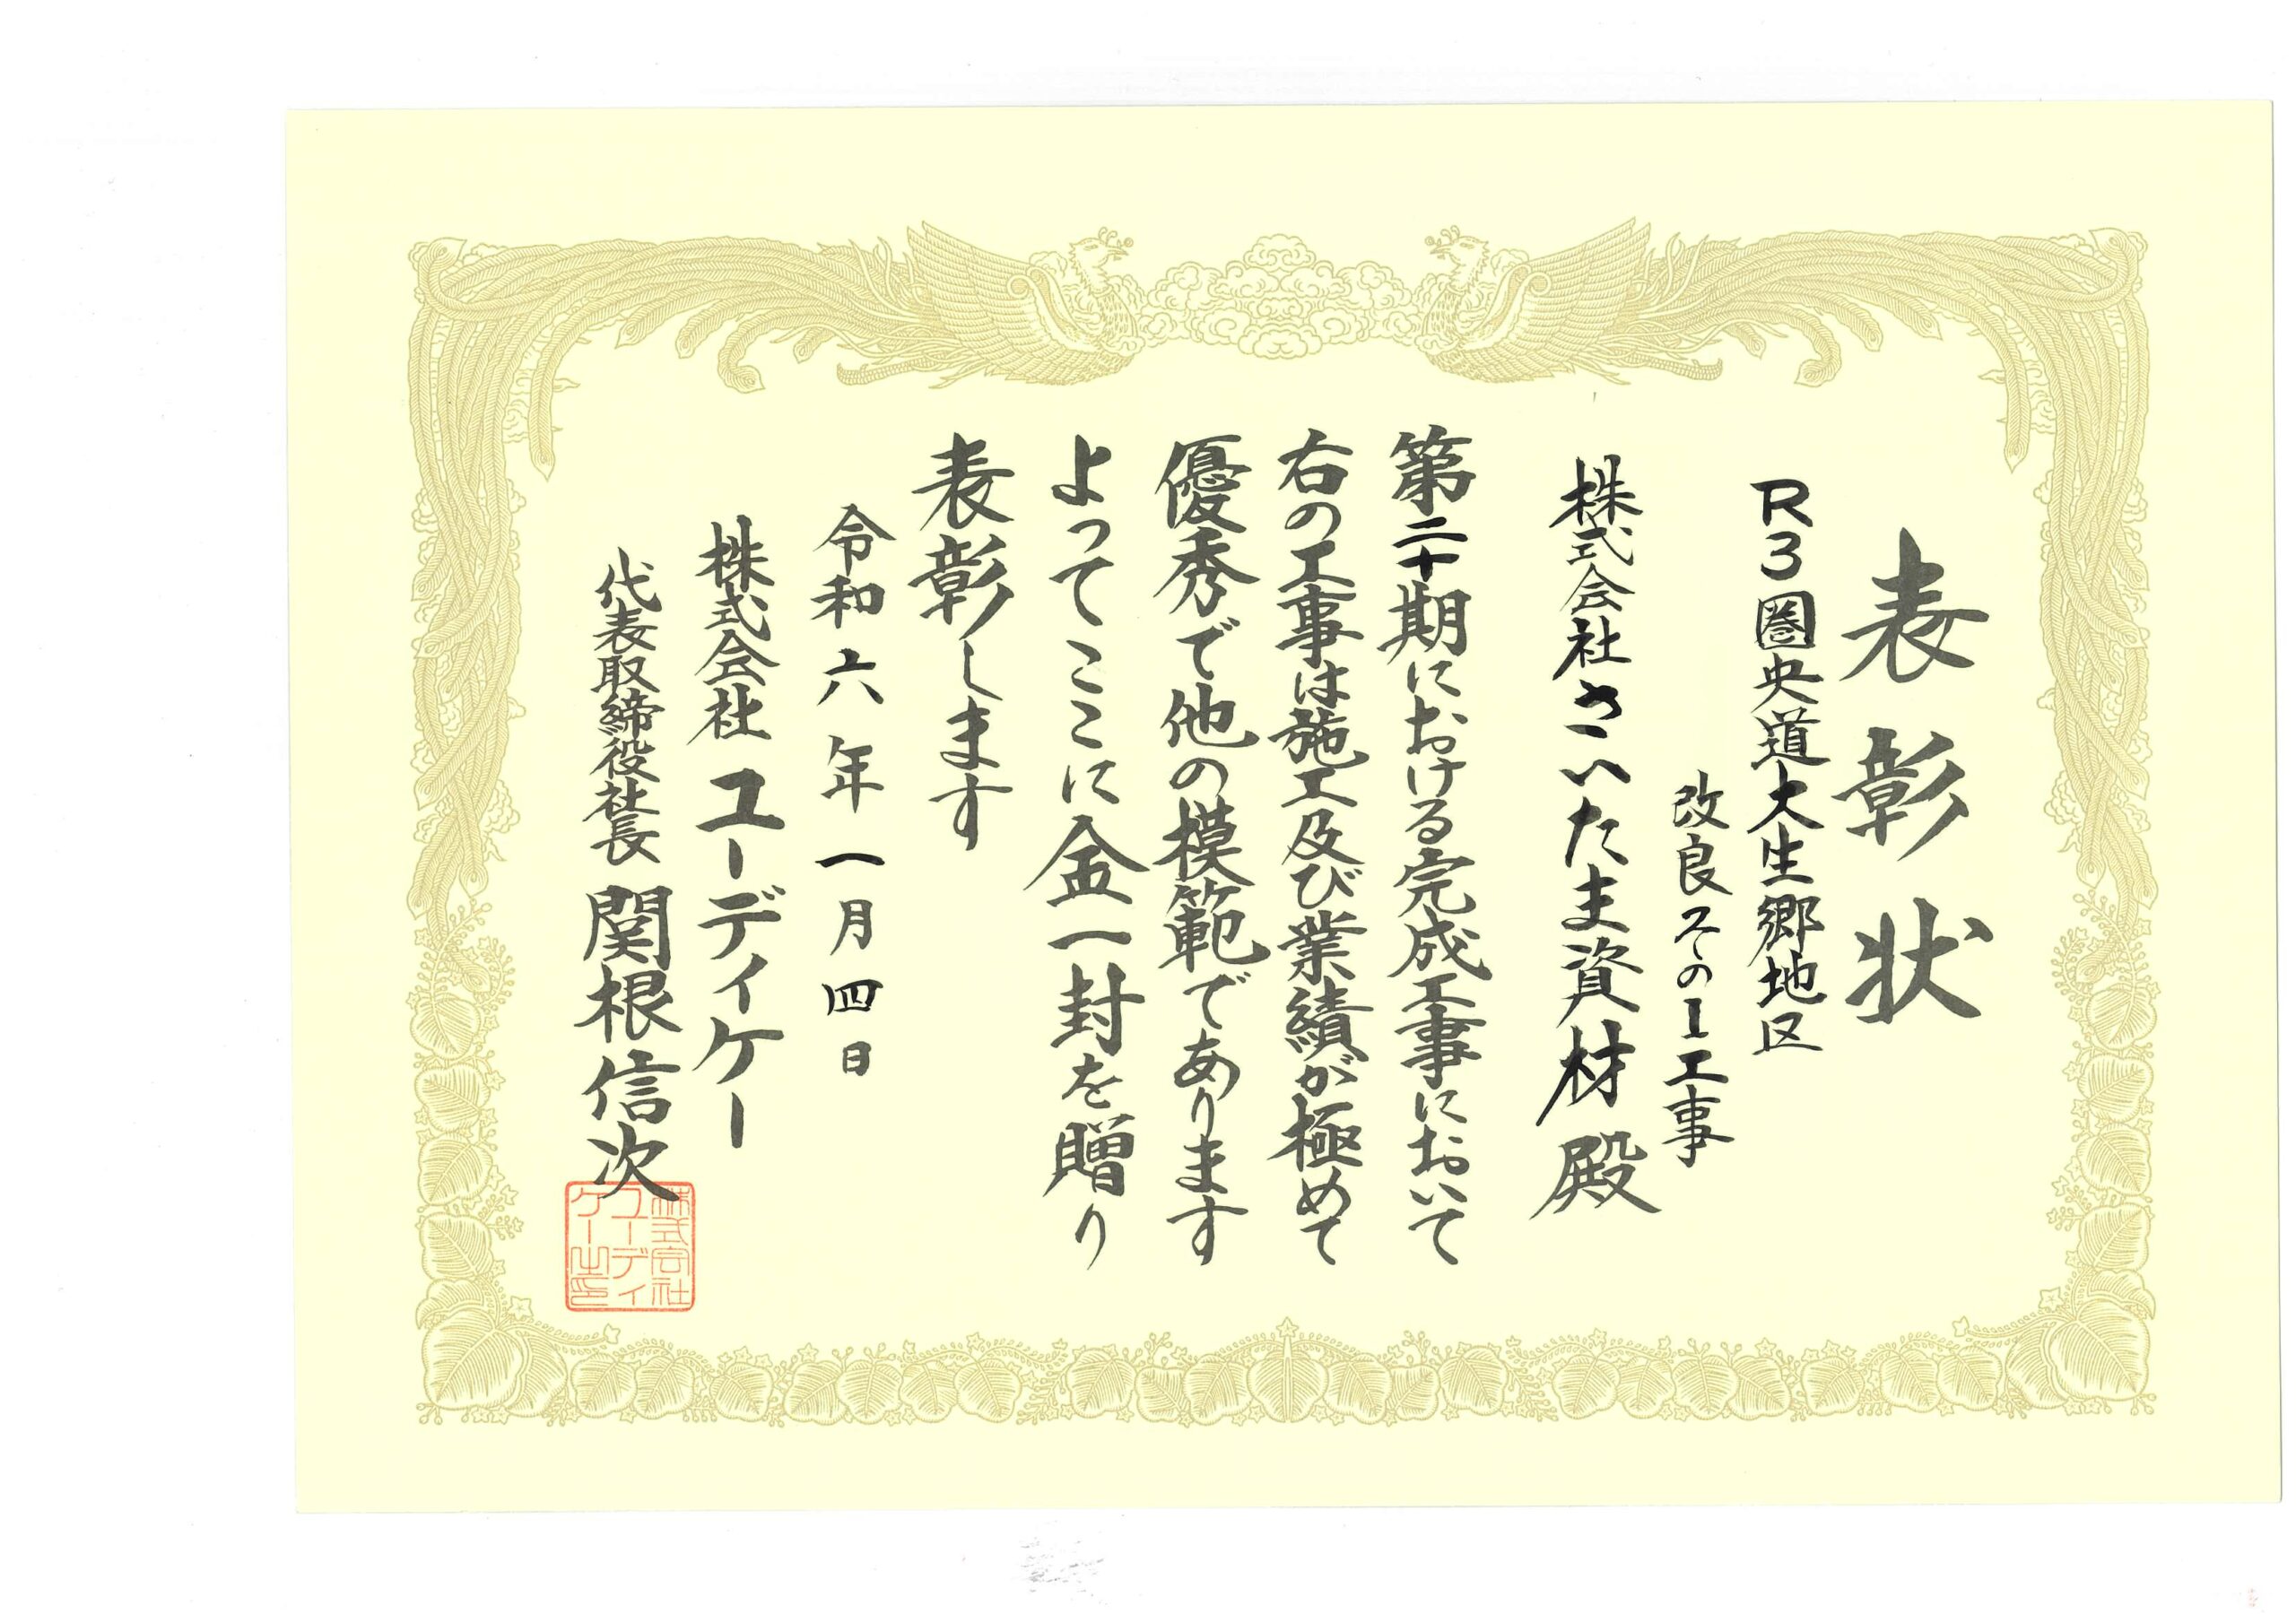 表彰状
R3圏央道大生郷地区
改良その1工事
株式会社さいたま資材 殿
第二十期における完成工事において
右の工事は施工及び業績が極めて
優秀で他の模範であります
よってここに金一封を贈り
表彰します
令和六年一月四日
株式会社ユーディケー
代表取締役社長 関根信次
株式会社
ユーディ
ケー之印